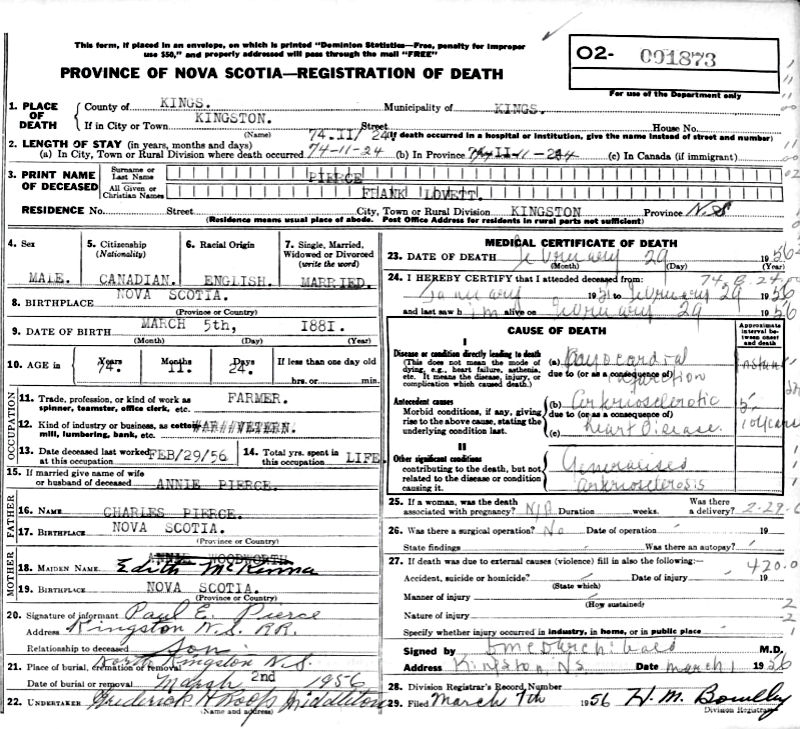 This form, if placed in an envelope, on which is printed "Dominion Statistics—Free, penalty for improper
use $50," and properly addressed will pass through the mail "FREE"
PROVINCE OF NOVA SCOTIA—REGISTRATION OF DEATH
O2- 001873
For use of the Department only
1. PLACE OF DEATH { County of KINGS. Municipality of KINGS.
If in City or Town KINGSTON. Street House No.
(Name) 74.II/24 If death occurred in a hospital or institution, give the name instead of street and number)
2. LENGTH OF STAY (in years, months and days)
(a) In City, Town or Rural Division where death occurred 74-11-24 (b) In Province 74-11-24 (c) In Canada (if immigrant)
3. PRINT NAME OF DECEASED { Surname or Last Name PIERCE
All Given or Christian Names FRANK LOVETT.
RESIDENCE No. Street City, Town or Rural Division KINGSTON Province N.S
(Residence means usual place of abode. Post Office Address for residents in rural parts not sufficient)
4. Sex 5. Citizenship (Nationality) 6. Racial Origin 7. Single, Married, Widowed or Divorced (write the word)
MALE. CANADIAN. ENGLISH. MARRIED.
8. BIRTHPLACE NOVA SCOTIA.
(Province or Country)
9. DATE OF BIRTH MARCH 5th, 1881.
(Month) (Day) (Year)
10. AGE in Years Months Days If less than one day old
74. 11. 24. hrs. or min.
OCCUPATION
11. Trade, profession, or kind of work as spinner, teamster, office clerk, etc. FARMER.
12. Kind of industry or business, as cotton mill, lumbering, bank, etc.
13. Date deceased last worked at this occupation FEB/29/56 14. Total yrs. spent in this occupation LIFE.
15. If married give name of wife or husband of deceased ANNIE PIERCE.
FATHER
16. NAME CHARLES PIERCE.
17. BIRTHPLACE NOVA SCOTIA.
(Province or Country)
MOTHER
ANNIE WOODWORTH
18. MAIDEN NAME Edith McKenna
19. BIRTHPLACE NOVA SCOTIA.
(Province or Country)
20. Signature of informant Paul E. Pierce
Address Kingston N.S. RR.
Relationship to deceased Son
21. Place of burial, cremation or removal North Kingston N.S.
Date of burial or removal March 2nd 1956
22. UNDERTAKER Frederick H Roop Middleton
(Name and address)
MEDICAL CERTIFICATE OF DEATH
23. DATE OF DEATH February 29 1956
(Month) (Day) (Year)
24. I HEREBY CERTIFY that I attended deceased from:
January 1931 to February 29 1956
and last saw him on February 29 1956
CAUSE OF DEATH
Approximate interval between onset and death
I
Disease or condition directly leading to death
(This does not mean the mode of dying, e.g., heart failure, asthenia, etc. It means the disease, injury, or complication which caused death.)
(a) Myocardial infarction instant
due to (or as a consequence of)
Antecedent causes
Morbid conditions, if any, giving rise to the above cause, stating the underlying condition last.
(b) Arteriosclerotic 5-
due to (or as a consequence of)
(c) Heart Disease. 10 years
II
Other significant conditions
contributing to the death, but not related to the disease or condition causing it.
Generalised
Arteriosclerosis
25. If a woman, was the death associated with pregnancy? N/A Duration weeks. Was there a delivery?
2-29-
26. Was there a surgical operation? No Date of operation 19
State findings Was there an autopsy?
27. If death was due to external causes (violence) fill in also the following:—
420.0
Accident, suicide or homicide? Date of injury 19
(State which)
Manner of injury
(How sustained)
Nature of injury
Specify whether injury occurred in industry, in home, or in public place
Signed by M.D.
Address Kingston, NS Date March 1 1956
28. Division Registrar's Record Number
29. Filed March 7th 1956 H. M. Bowlby
Division Registrar